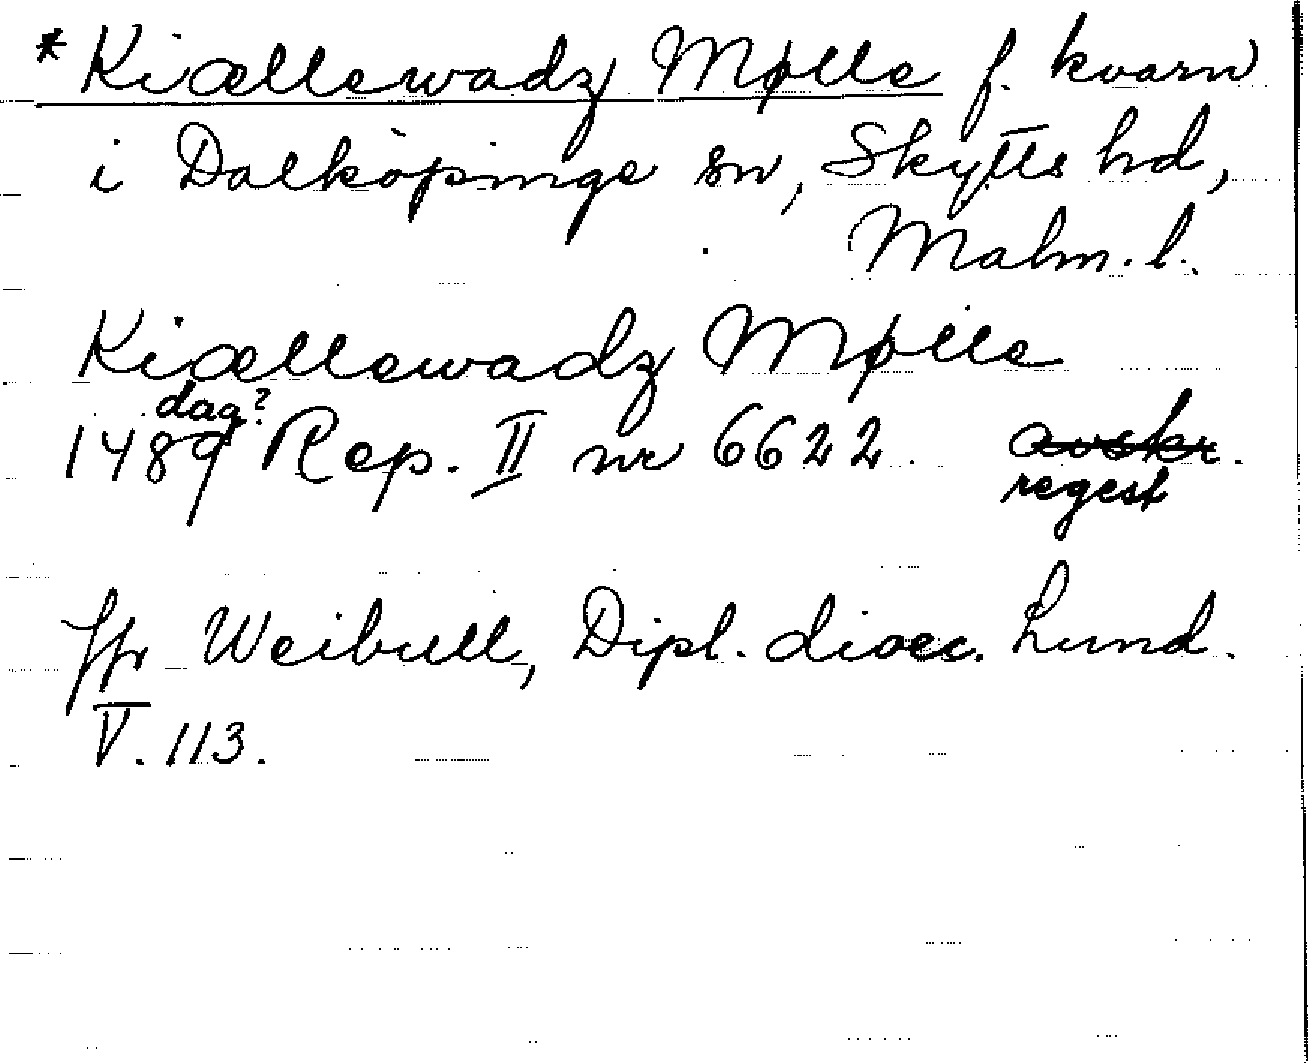 * Kiællewadz Mølle f. kvarn
i Dalköpinge sn, Skytts hd,
Malm. l.
Kiællewadz Mølle
dag?
1489 Rep. II nr 6622 avskr.
regest
Jfr Weibull, Dipl. dioec. Lund.
V. 113.